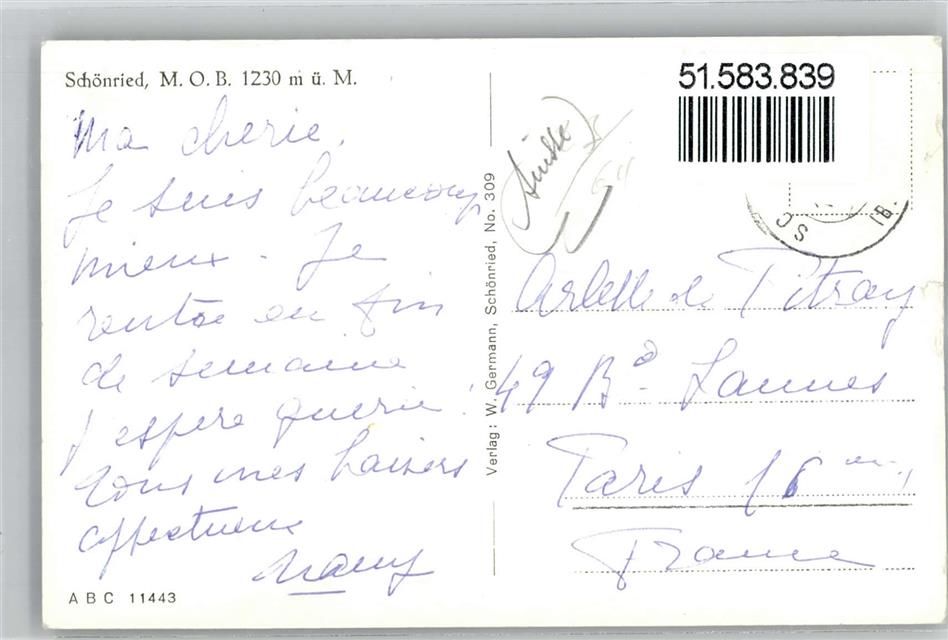 Schönried, M. O. B. 1230 m ü. M.
Ma cherie,
Je suis beaucoup
mieux - Je
rentre en fin
de semaine
j'espère guerie!
Tous mes baisers
affectueux
Nany
A B C 11443
Verlag: W. Germann, Schönried, No. 309
Suisse
51.583.839
SC
IB.
Arlette de Pitray
49 Bd. Lannes
Paris 16
France